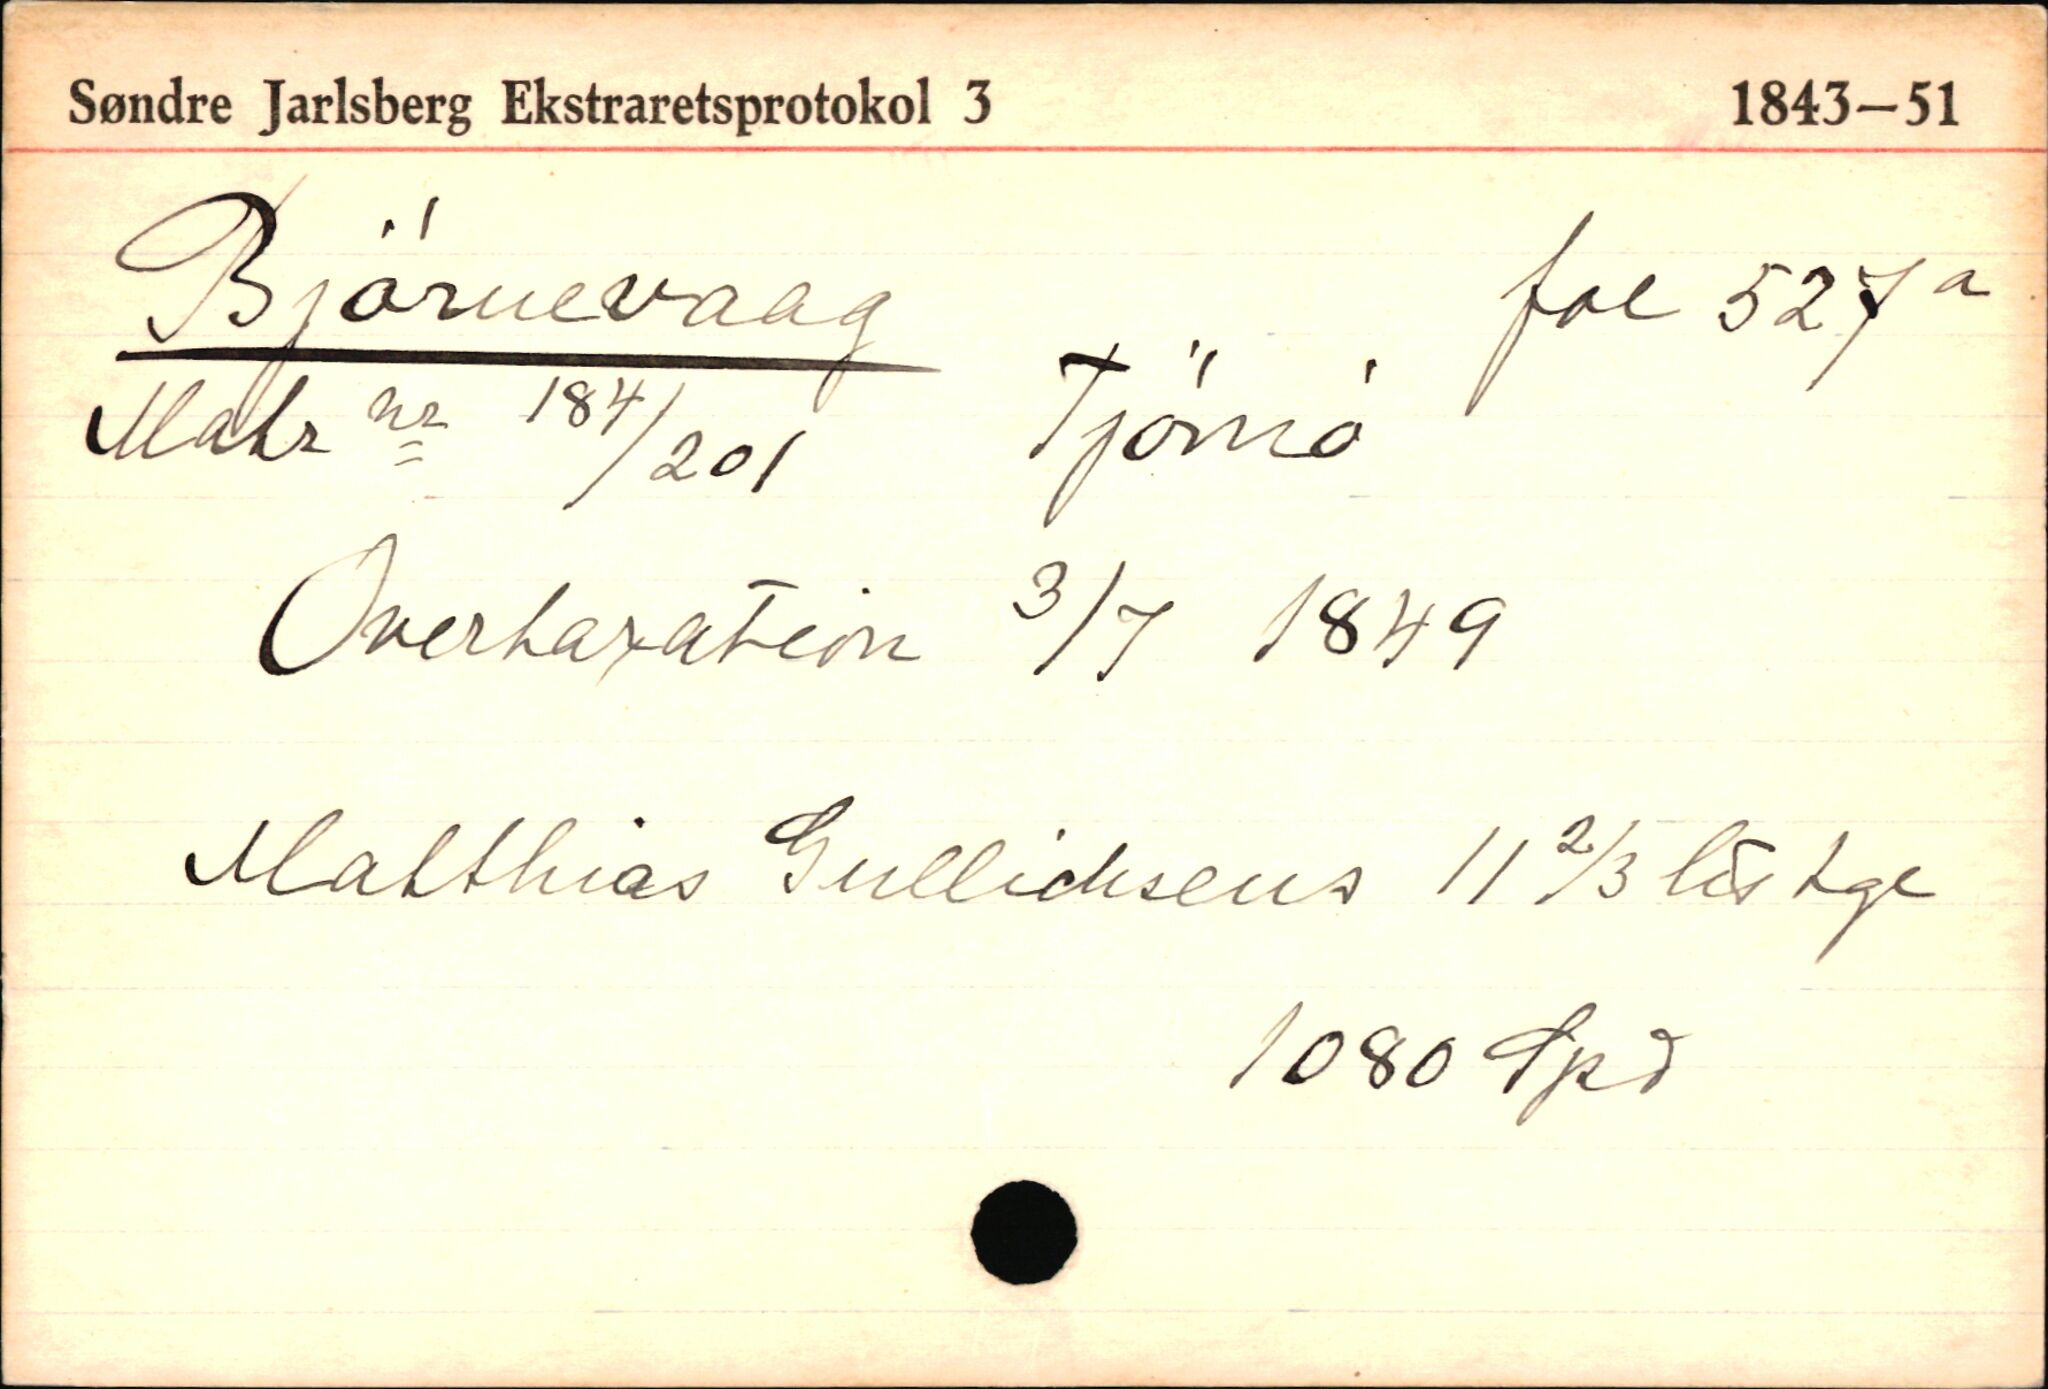 Søndre Jarlsberg Ekstraretsprotokol 3 1843–51
Björnevaag fol 527a
Matr nr 184/201 Tjömö
Overtaxation 3/7 1849
Matthias Gullichsens 11 2/3 lis tge
1080 Spd